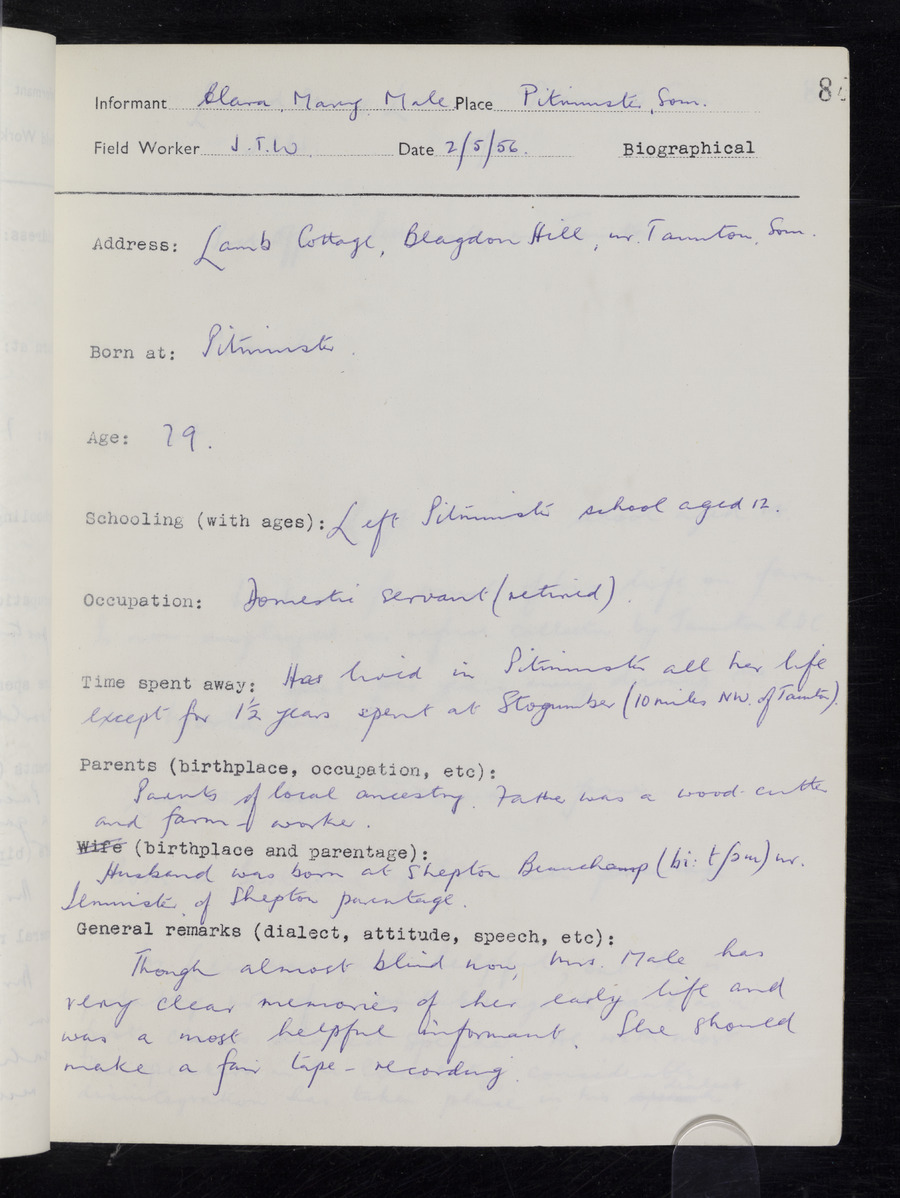 Informant Clara Mary Male Place Pitminster, Som.
Field Worker J.T.W. Date 2/5/56. Biographical
Address: Lamb Cottage, Blagdon Hill, nr. Taunton, Som.
Born at: Pitminster.
Age: 79.
Schooling (with ages): Left Pitminster school aged 12.
Occupation: Domestic servant (retired).
Time spent away: Has lived in Pitminster all her life
except for 1½ years spent at Stogumber (10 miles NW. of Taunton).
Parents (birthplace, occupation, etc):
Parents of local ancestry. Father was a wood-cutter
and farm-worker.
Wife (birthplace and parentage):
Husband was born at Shepton Beauchamp nr.
Ilminster, of Shepton parentage.
General remarks (dialect, attitude, speech, etc):
Though almost blind now, Mrs. Male has
very clear memories of her early life and
was a most helpful informant. She should
make a fair tape-recording.